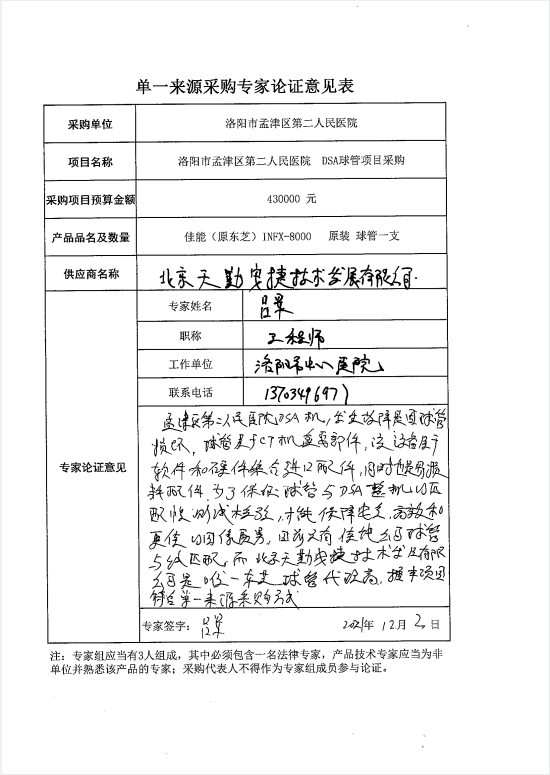 单一来源采购专家论证意见表
采购单位 洛阳市孟津区第二人民医院
项目名称 洛阳市孟津区第二人民医院 DSA球管项目采购
采购项目预算金额 430000 元
产品品名及数量 佳能（原东芝）INFX-8000 原装 球管一支
供应商名称 北京天勤安捷技术发展有限公司.
专家姓名 吕
职称 工程师
工作单位 洛阳市中心医院
联系电话
专家论证意见
孟津区第二人民医院DSA机，发生故障是因球管
损坏，球管是 机 部件，该设备属于
软件和硬件集合进口配件，同时也是易损
耗配件，为了保证球管与DSA整机的匹
配性测试校验，才能保障安全、高效和
更佳的图像质量，目前只有 公司球管
与 匹配，而北京天勤安捷技术发展有限
公司是唯一东芝球管代 商，据本项目
符合单一来源采购方式
专家签字： 吕 2021年 12月 2日
注：专家组应当有3人组成，其中必须包含一名法律专家，产品技术专家应当为非
单位并熟悉该产品的专家；采购代表人不得作为专家组成员参与论证。